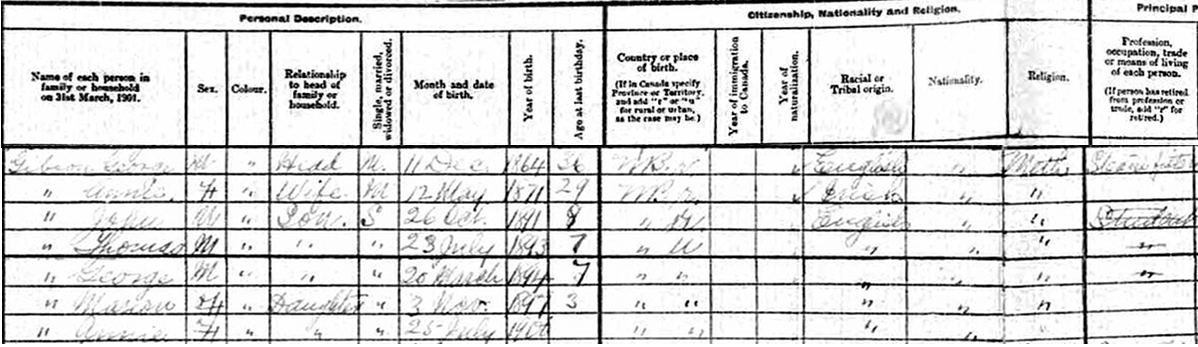 Personal Description. Citizenship, Nationality and Religion. Principal P
Name of each person in family or household on 31st March, 1901. Sex. Colour. Relationship to head of family or household. Single, married, widowed or divorced. Month and date of birth. Year of birth. Age at last birthday. Country or place of birth. (If in Canada specify Province or Territory, and add "r" or "u" for rural or urban, as the case may be.) Year of immigration to Canada. Year of naturalization. Racial or Tribal origin. Nationality. Religion. Profession, occupation, trade or means of living of each person. (If person has retired from profession or trade, add "r" for retired.)
Gibson George M " Head M. 11 Dec 1864 36 N.B. r English " Meth
" Annie F " Wife M 12 May 1871 29 N.B. r. Irish " "
" John M " Son S 26 1891 9 " English " " Student
" Thomas M " " " 23 July 1893 7 " u " " " "
" George M " " " 20 March 1894 7 " " " " " "
" Marion F " Daughter " 3 Nov. 1897 3 " " " " "
" Annie F " " " 25 July 1900 " " " "